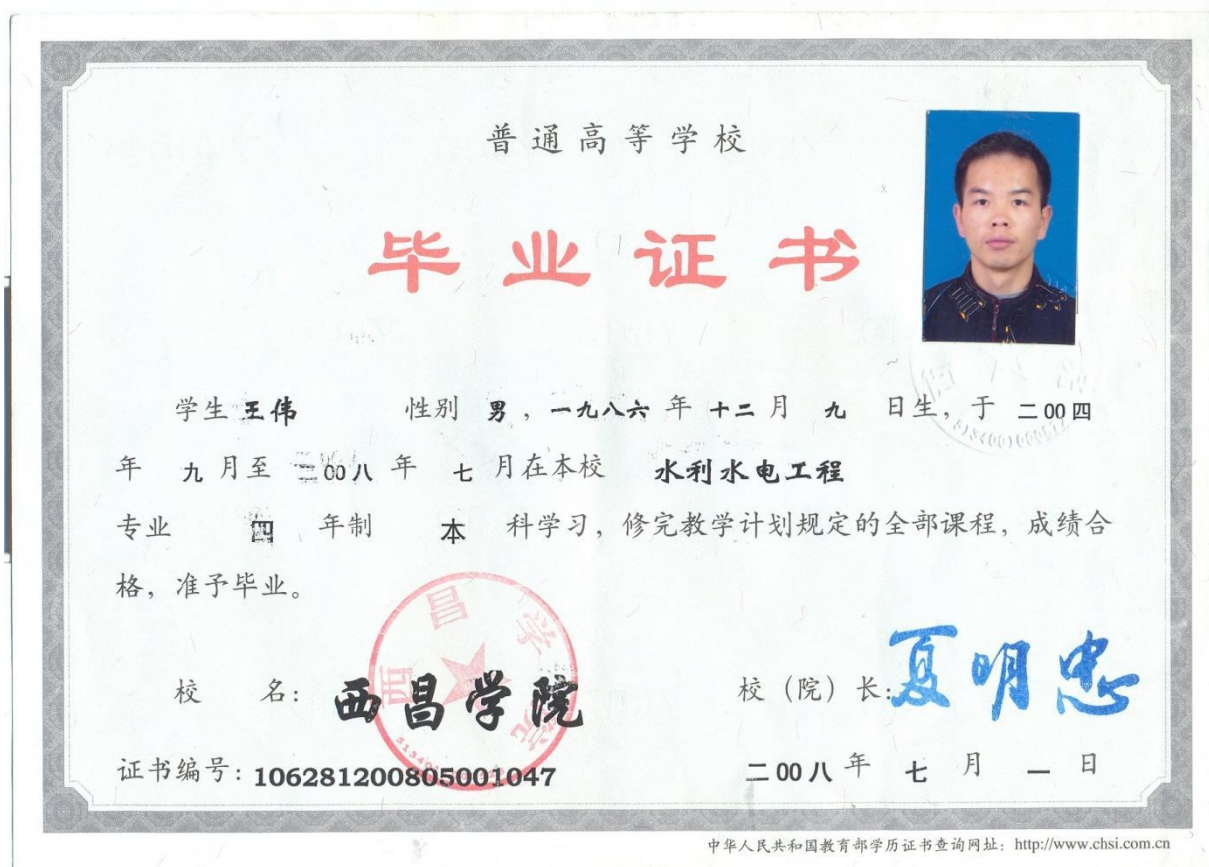 普通高等学校
毕业证书
学生 王伟 性别 男，一九八六 年 十二 月 九 日生，于 二00四
年 九 月至 二00八 年 七 月在本校 水利水电工程
专业 四 年制 本 科学习，修完教学计划规定的全部课程，成绩合
格，准予毕业。
西昌学院
校 名：西昌学院 校（院）长：夏明忠
证书编号：106281200805001047 二00八 年 七 月 一 日
中华人民共和国教育部学历证书查询网址：http://www.chsi.com.cn